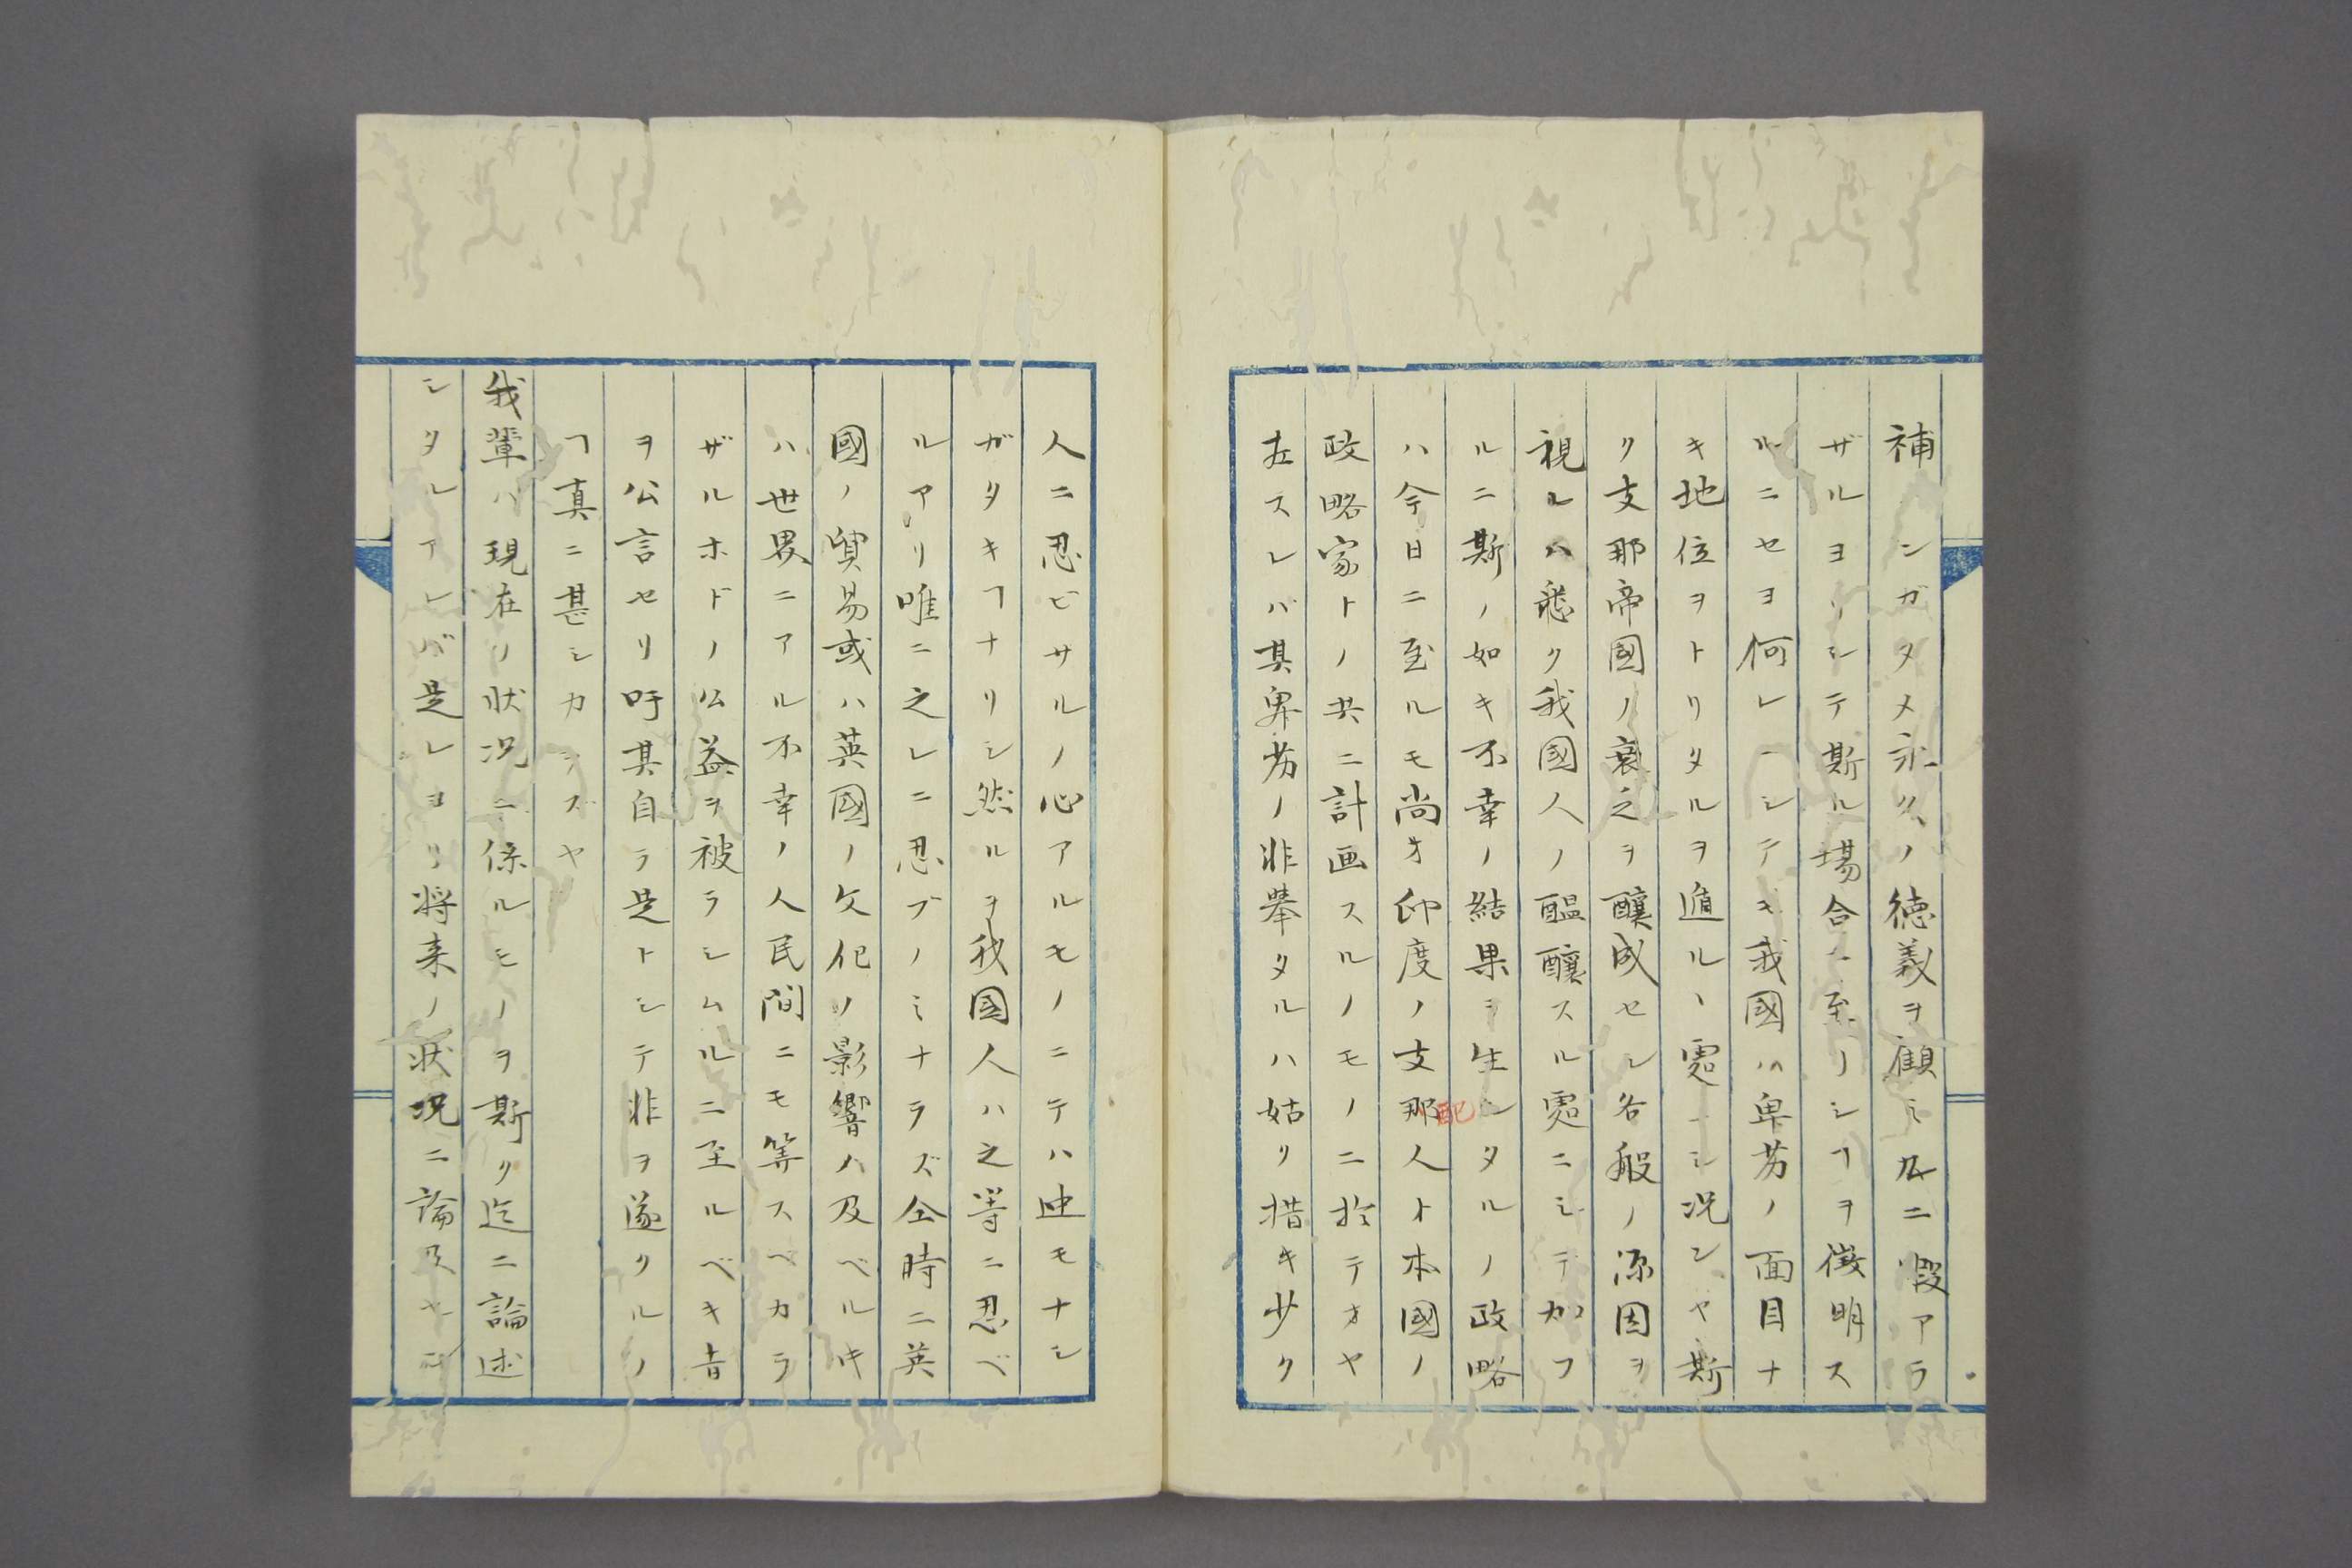 補ンガタメ永久ノ徳義ヲ顧ミルニ暇アラ
ザルヨリシテ斯ル場合ニ至リシヿヲ徴明ス
ルニセヨ何レニシテモ我國ハ卑劣ノ面目ナ
キ地位ヲトリタルヲ遁ルヽ處ナシ況ンヤ斯
ク支那帝國ノ衰乏ヲ釀成セシ各般ノ源因ヲ
視ルハ悉ク我國人ノ醞釀スル處ニシテ加フ
ルニ斯ノ如キ不幸ノ結果ヲ生シタルノ政略
配
ハ今日ニ至ルモ尚オ印度ノ支那人ト本國ノ
政略家トノ共ニ計画スルノモノニ於テオヤ
左スレバ其卑劣ノ非舉タルハ姑リ措キ少ク
人ニ忍ビサルノ心アルモノニテハ迚モナシ
ガタキヿナリシ然ルヲ我国人ハ之等ニ忍ベ
ルアリ唯ニ之レニ忍ブノミナラズ仝時ニ英
國ノ貿易或ハ英國ノ交化ノ影響ハ及ベルキ
ハ世界ニアル不幸ノ人民間ニモ等スベカラ
ザルホドノ公益ヲ被ラシムルニ至ルベキ旨
ヲ公言セリ吁其自ラ是トシテ非ヲ遂クルノ
ヿ真ニ甚シカラズヤ
我輩ハ現在ノ状况ニ係ルモノヲ斯ク迄ニ論述
シタレアレバ是レヨリ将来ノ状况ニ論及セン